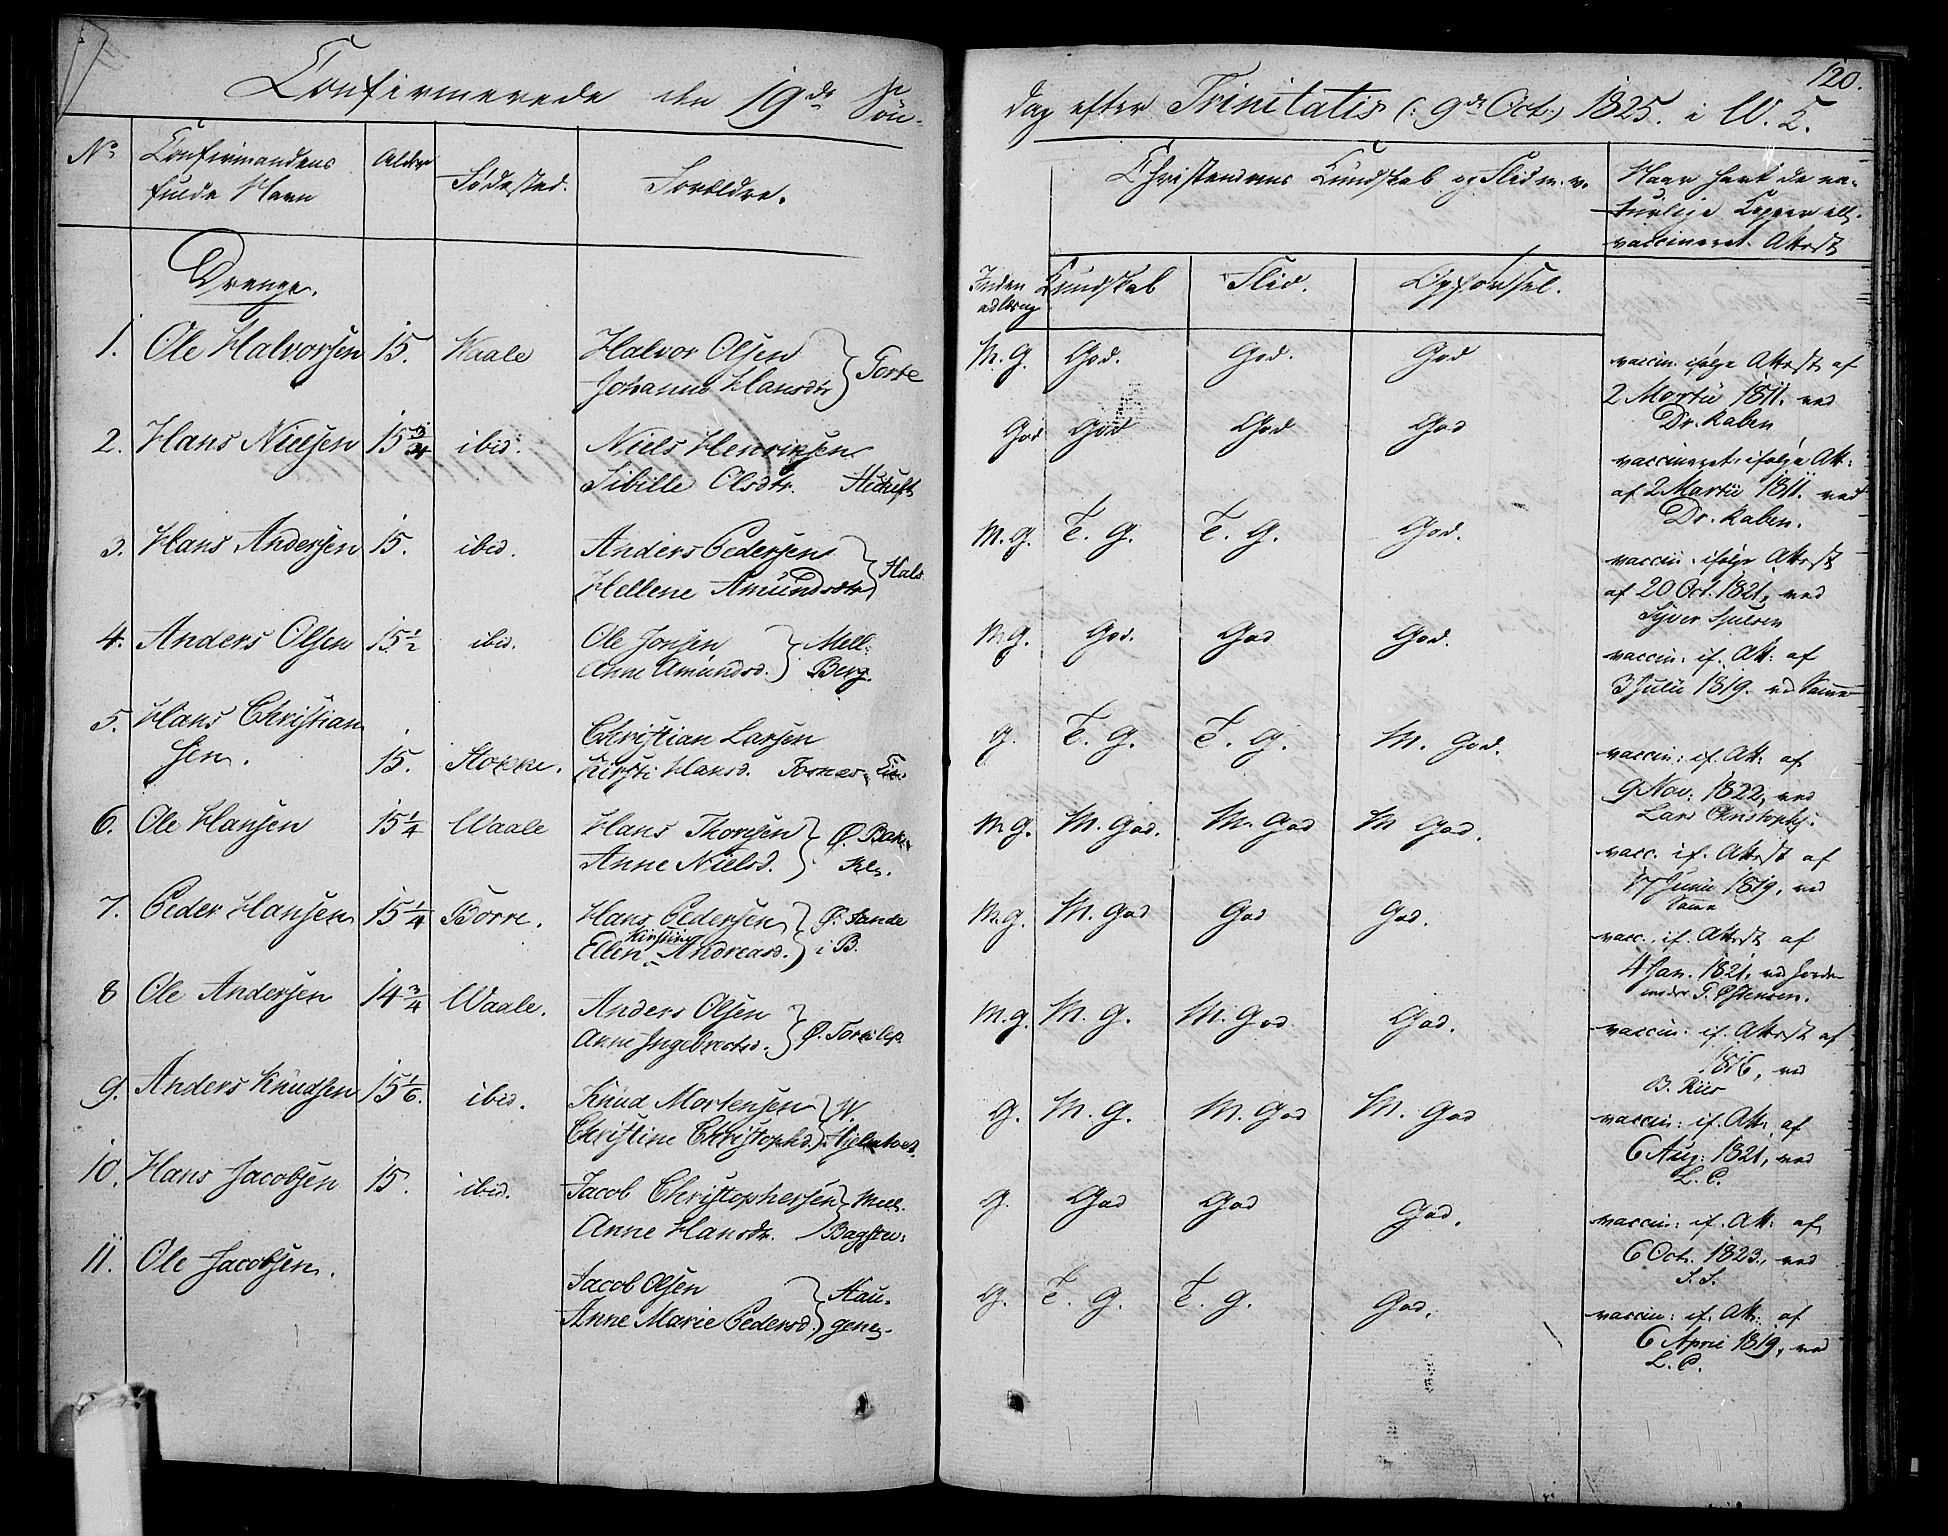 Confirmerede den 19de Søn-
No
Confirmandens
fulde Navn
Alder
Fødested.
Forældre.
Drenge.
1. Ole Halvorsen 15. Waale Halvor Olsen
Johanne Hansdtr Torre
2. Hans Nielsen 15 3/4 ibid. Niels Henriksen
Sibille Olsdtr.
3. Hans Andersen 15. ibid. Anders Pedersen
Hellene Amundsdtr Hals
4. Anders Olsen 15 1/2 ibid. Ole Jonsen Mell:
Anne Amundsd. Berg.
5. Hans Christian Christian Larsen
sen. 15. Stokke. Kirsti Hansd.
6. Ole Hansen 15 1/4 Waale Hans Thoresen
Anne Nielsd.
7. Peder Hansen 15 1/4 Borre. Hans Pedersen Ø. Sande
Kirstine
Ellen Andreasd. i B.
8 Ole Andersen 14 3/4 Waale. Anders Olsen
Anne Ingebrectsd.
9. Anders Knudsen 15 1/6. ibid. Knud Mortensen W.
Christine Christophd.
10. Hans Jacobsen 15. ibid. Jacob Christophersen Mell.
Anne Hansdr.
11. Ole Jacobsen. Jacob Olsen Hau-
Anne Marie Pedersd. gene.
120.
dag efter Trinitatis (: 9de Oct:) 1825. i W. K.
Christendoms Kundskab og Flid m. v.
Naar havt de na-
turlige Kopper ell.
vaccineret. Attest
Inden Kundskab Flid. Opførsel.
M. G. God. God. God vaccin. ifølge Attest af
2 Martii 1811. ved
Dr. Raben
God God God God vaccineret, ifølge Att:
af 2 Martii 1811. ved
Dr. Raben.
M. G. T. G. T. G. God. vaccin. ifølge Attest
af 20 Oct. 1821, ved
M G. God. God God. vaccin: if. Att: af
3 Julii 1819. ved Samme
G. T. G. T. G. M. God. vaccin: if. Att: af
9 Nov: 1822, ved
Lars Christophs:
M G. M. God. M. God M God. vacc. if. Attest af
17 Junii 1819, ved
Samme
M. G. M. God God God. vacc. if. Attest af
4 Jan. 1821, ved Jorde-
moder
M. G. M. G. M. God God. vaccin: if. Attest af
1816, ved
B. Riis
G. M. G. M. God M. God vaccin: if. Att. af
6 Aug: 1821, ved
L. C.
G. God God God. vaccin: if. Att: af
6 Oct. 1823., ved
S. S.
G. T. G. T. G. God. vaccin: if. Att: af
6 April 1819, ved
L. C.